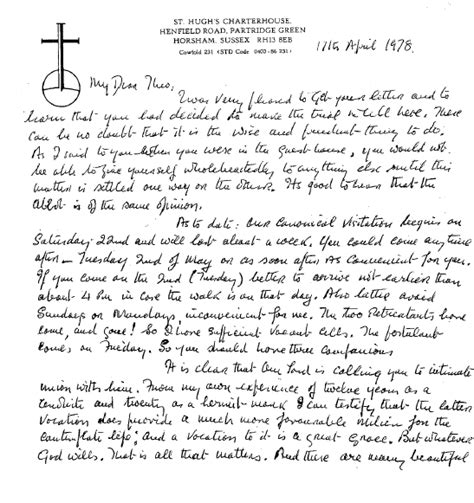 ST. HUGH'S CHARTERHOUSE,
HENFIELD ROAD, PARTRIDGE GREEN
HORSHAM, SUSSEX RH13 8EB
Cowfold 231 (STD Code 0403-86 231)
17th April 1978.
My Dear Theo,
I was very pleased to get your letter and to
learn that you had decided to make the trial in till here. There
can be no doubt that it is the wise and prudent thing to do.
As I said to you when you were in the guest house, you would not
be able to give yourself wholeheartedly to anything else until this
matter is settled one way or the other. Its good to hear that the
Abbot is of the same opinion.
As to date: our canonical visitation begins on
Saturday 22nd and will last about a week. You could come any time
after – Tuesday 2nd of May or as soon after as convenient for you.
If you come on the 2nd (Tuesday) better to arrive not earlier than
about 4 PM in case the walk is on that day. Also better avoid
Sundays or Mondays, inconvenient for me. The two Retreatants have
come, and gone! So I have sufficient vacant cells. The postulant
comes on Friday. So you should have three companions
It is clear that our Lord is calling you to intimate
union with him. From my own experience of twelve years as a
cenobite and twenty as a hermit-monk I can testify that the latter
vocation does provide a much more favourable milieu for the
contemplative life; and a vocation to it is a great grace. But whatever
God wills. That is all that matters. And there are many beautiful